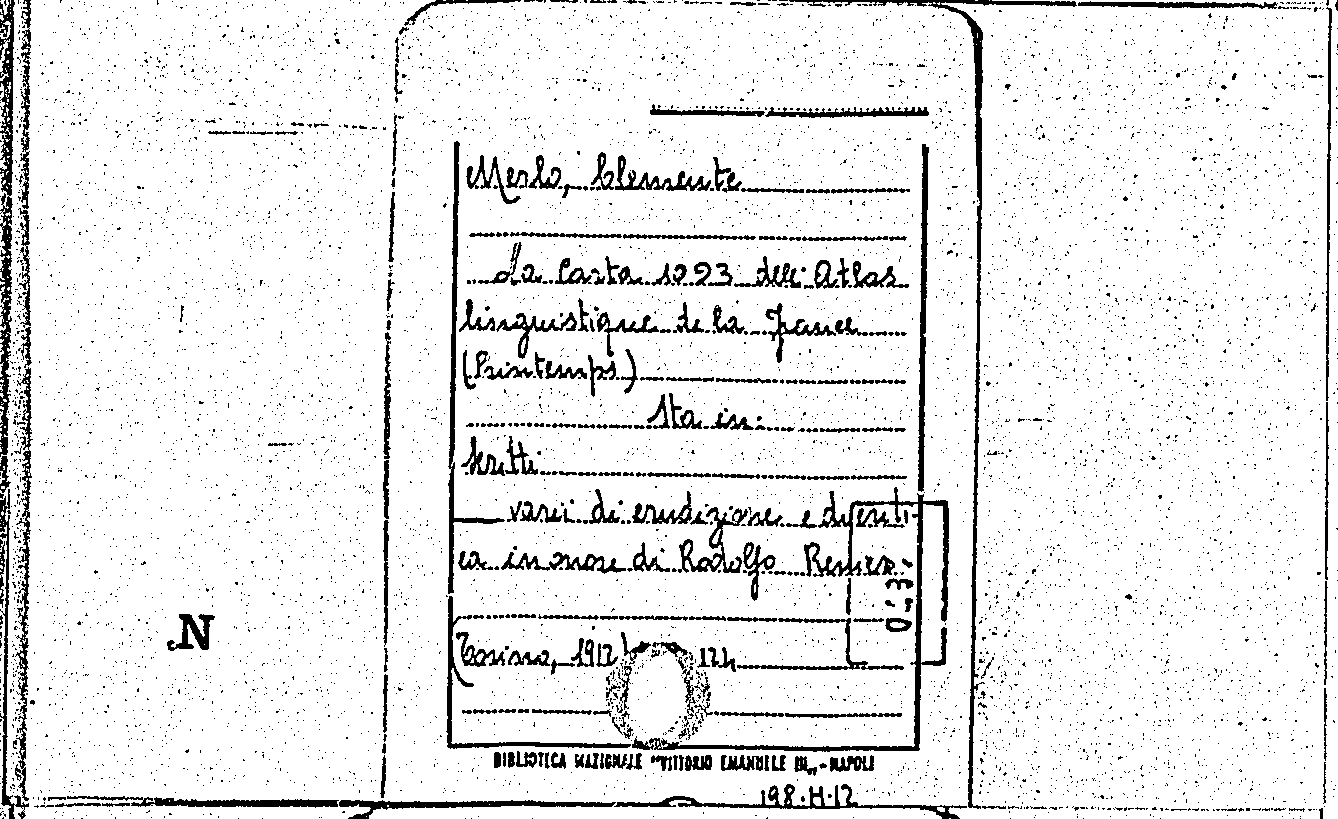 Merlo, Clemente
La Carta 1093 dell'Atlas
linguistique de la France
(Printemps)
Sta in:
Scritti
varii di erudizione e di criti-
ca in onore di Rodolfo Renier
(Torino, 1912)
BIBLIOTECA NAZIONALE "VITTORIO EMANUELE III" - NAPOLI
198.H.12
N